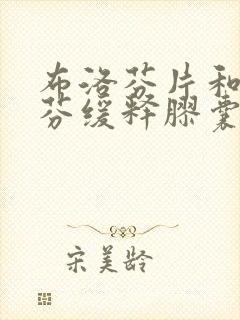 布洛芬片和
芬缓释胶囊
宋美龄